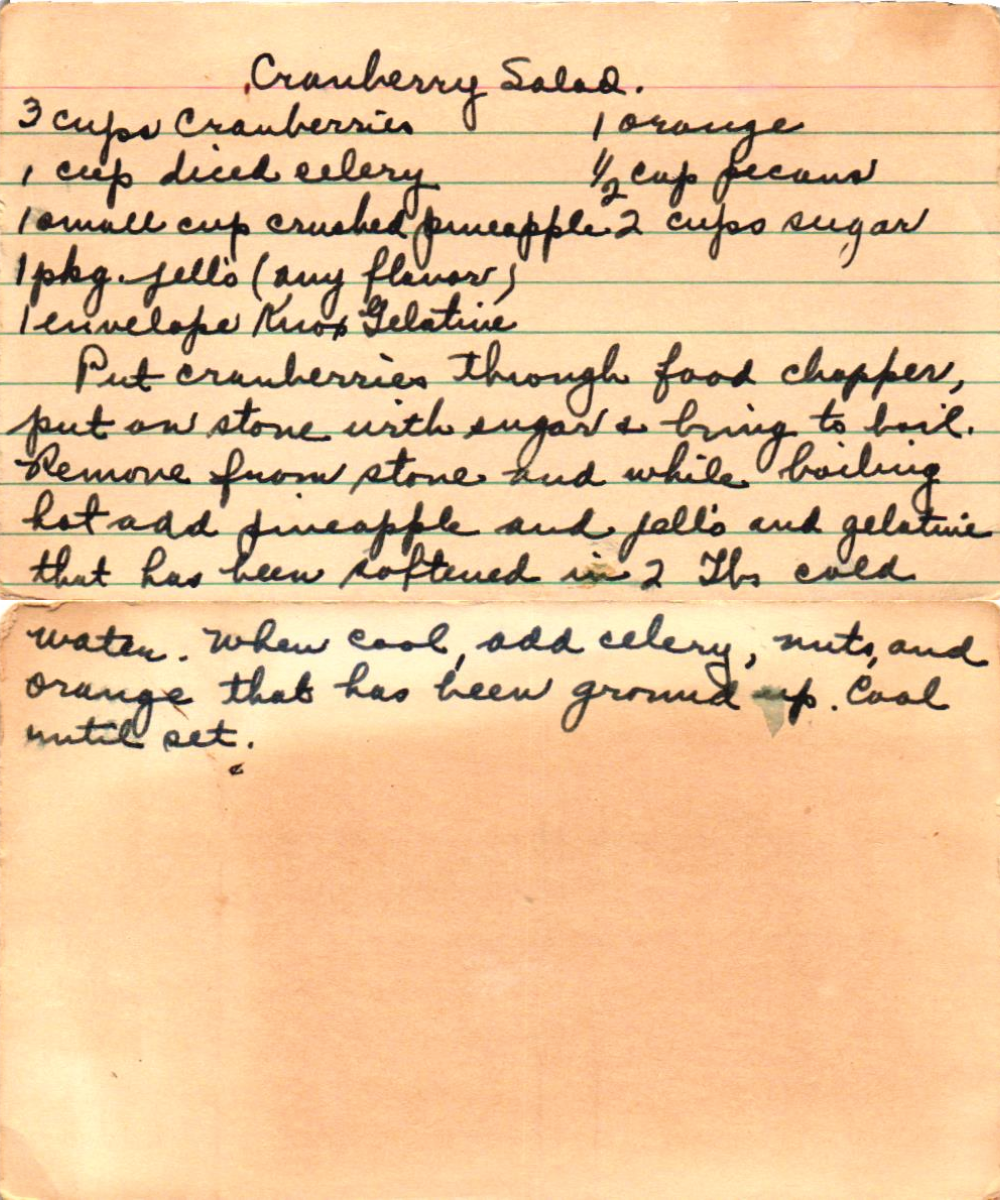 Cranberry Salad.
3 cups Cranberries 1 orange
1 cup diced celery 1/2 cup pecans
1 small cup crushed pineapple 2 cups sugar
1 pkg. jello (any flavor)
1 envelope Knox Gelatine
Put cranberries through food chopper,
put on stove with sugar & bring to boil.
Remove from stove and while boiling
hot add pineapple and jello and gelatine
that has been softened in 2 Tbs cold
water. When cool, add celery, nuts, and
orange that has been ground up. Cool
until set.